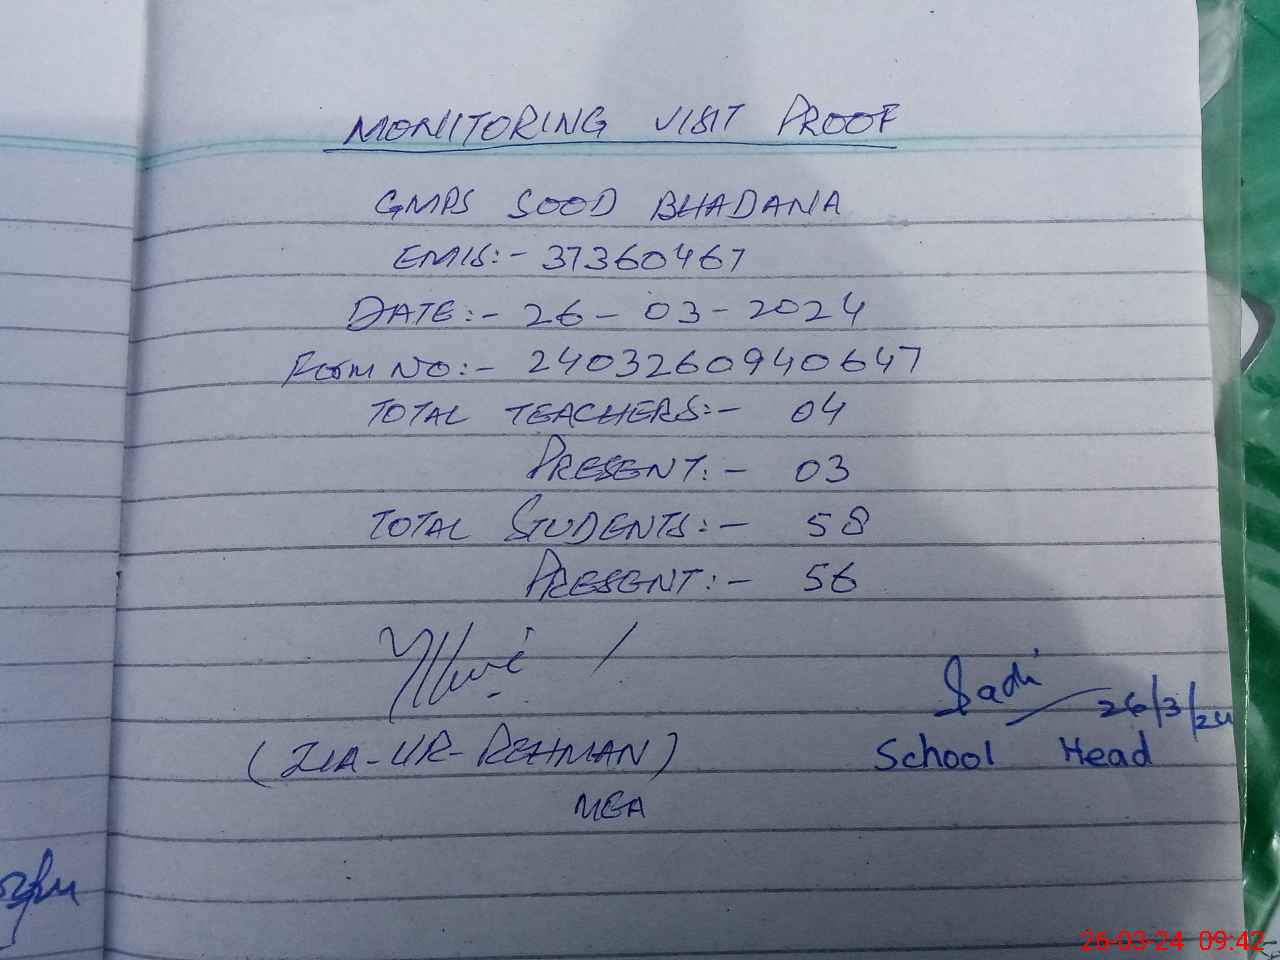 MONITORING VISIT PROOF
GMPS SOOD BHADANA
EMIS:- 37360467
DATE:- 26-03-2024
FORM NO:- 2403260940647
TOTAL TEACHERS:- 04
PRESENT:- 03
TOTAL STUDENTS:- 58
PRESENT:- 56
Sadi
26/3/24
(ZIA-UR-REHMAN)
School Head
MEA
26-03-24 09:42